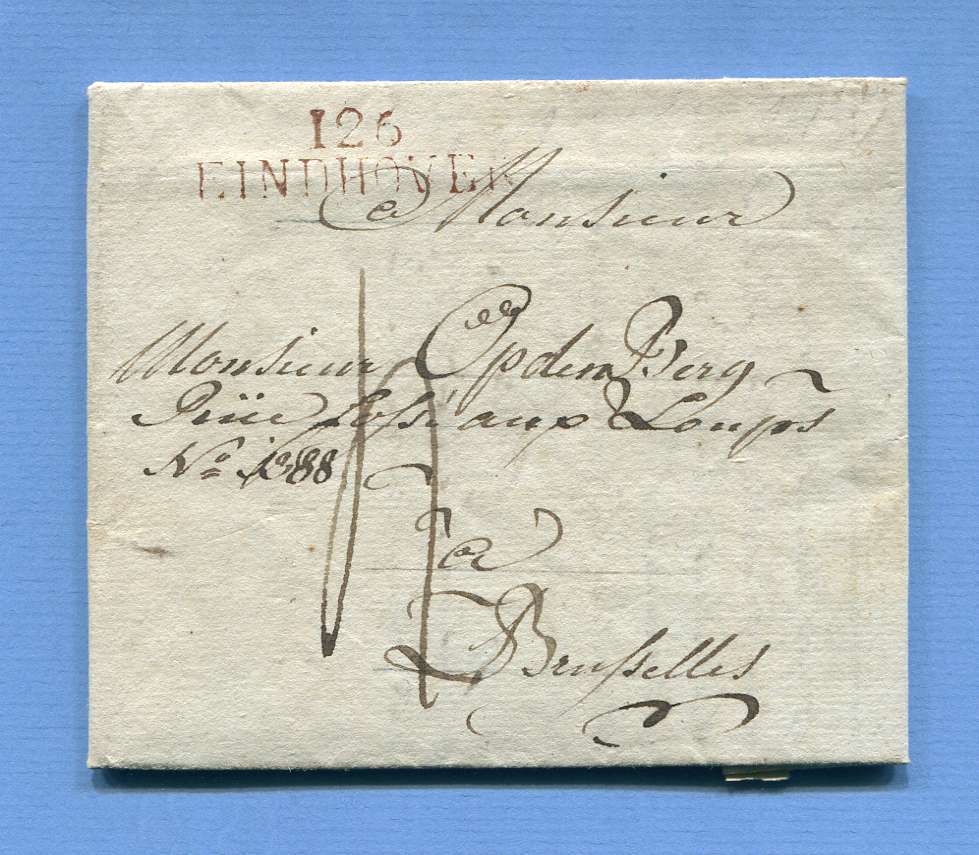 126
EINDHOVEN
a Monsieur
Monsieur Opden Berg
Rüe fossé aux Loups
No. 1388
a
Brusselles